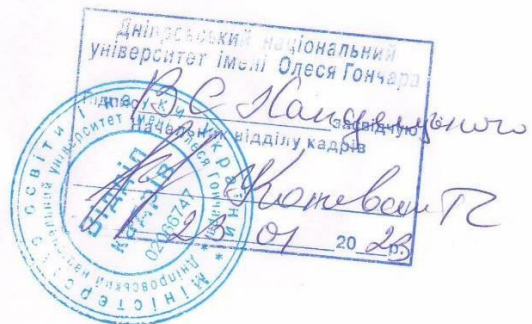 Дніпровський національний
університет імені Олеся Гончара
Підпис В.С. засвідчую
Начальник відділу кадрів
23 01 2023р.
Міністерство освіти і науки України
Дніпровський національний університет імені Олеся Гончара
Відділ
кадрів
02066747